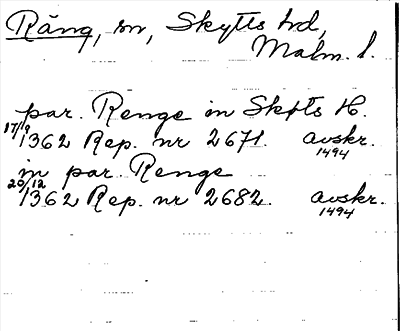 Räng, sn, Skytts hd,
Malm. l.
par. Renge in Skøts H.
17/9 1362 Rep. nr 2671. avskr. 1494
in par. Renge
20/12 1362 Rep. nr 2682. avskr. 1494